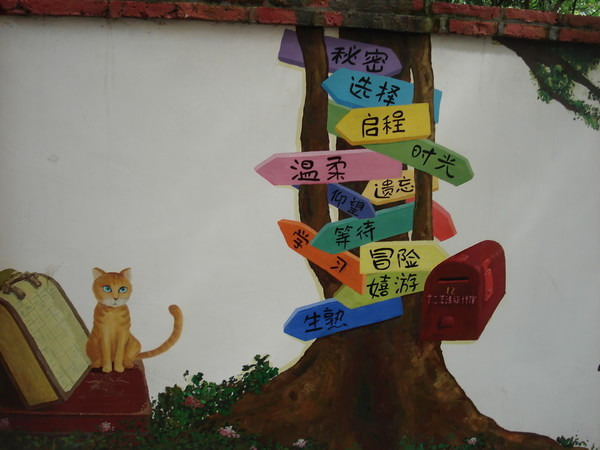 秘密
选择
启程
时光
温柔
遗忘
仰望
等待
学习
冒险
嬉游
生熟